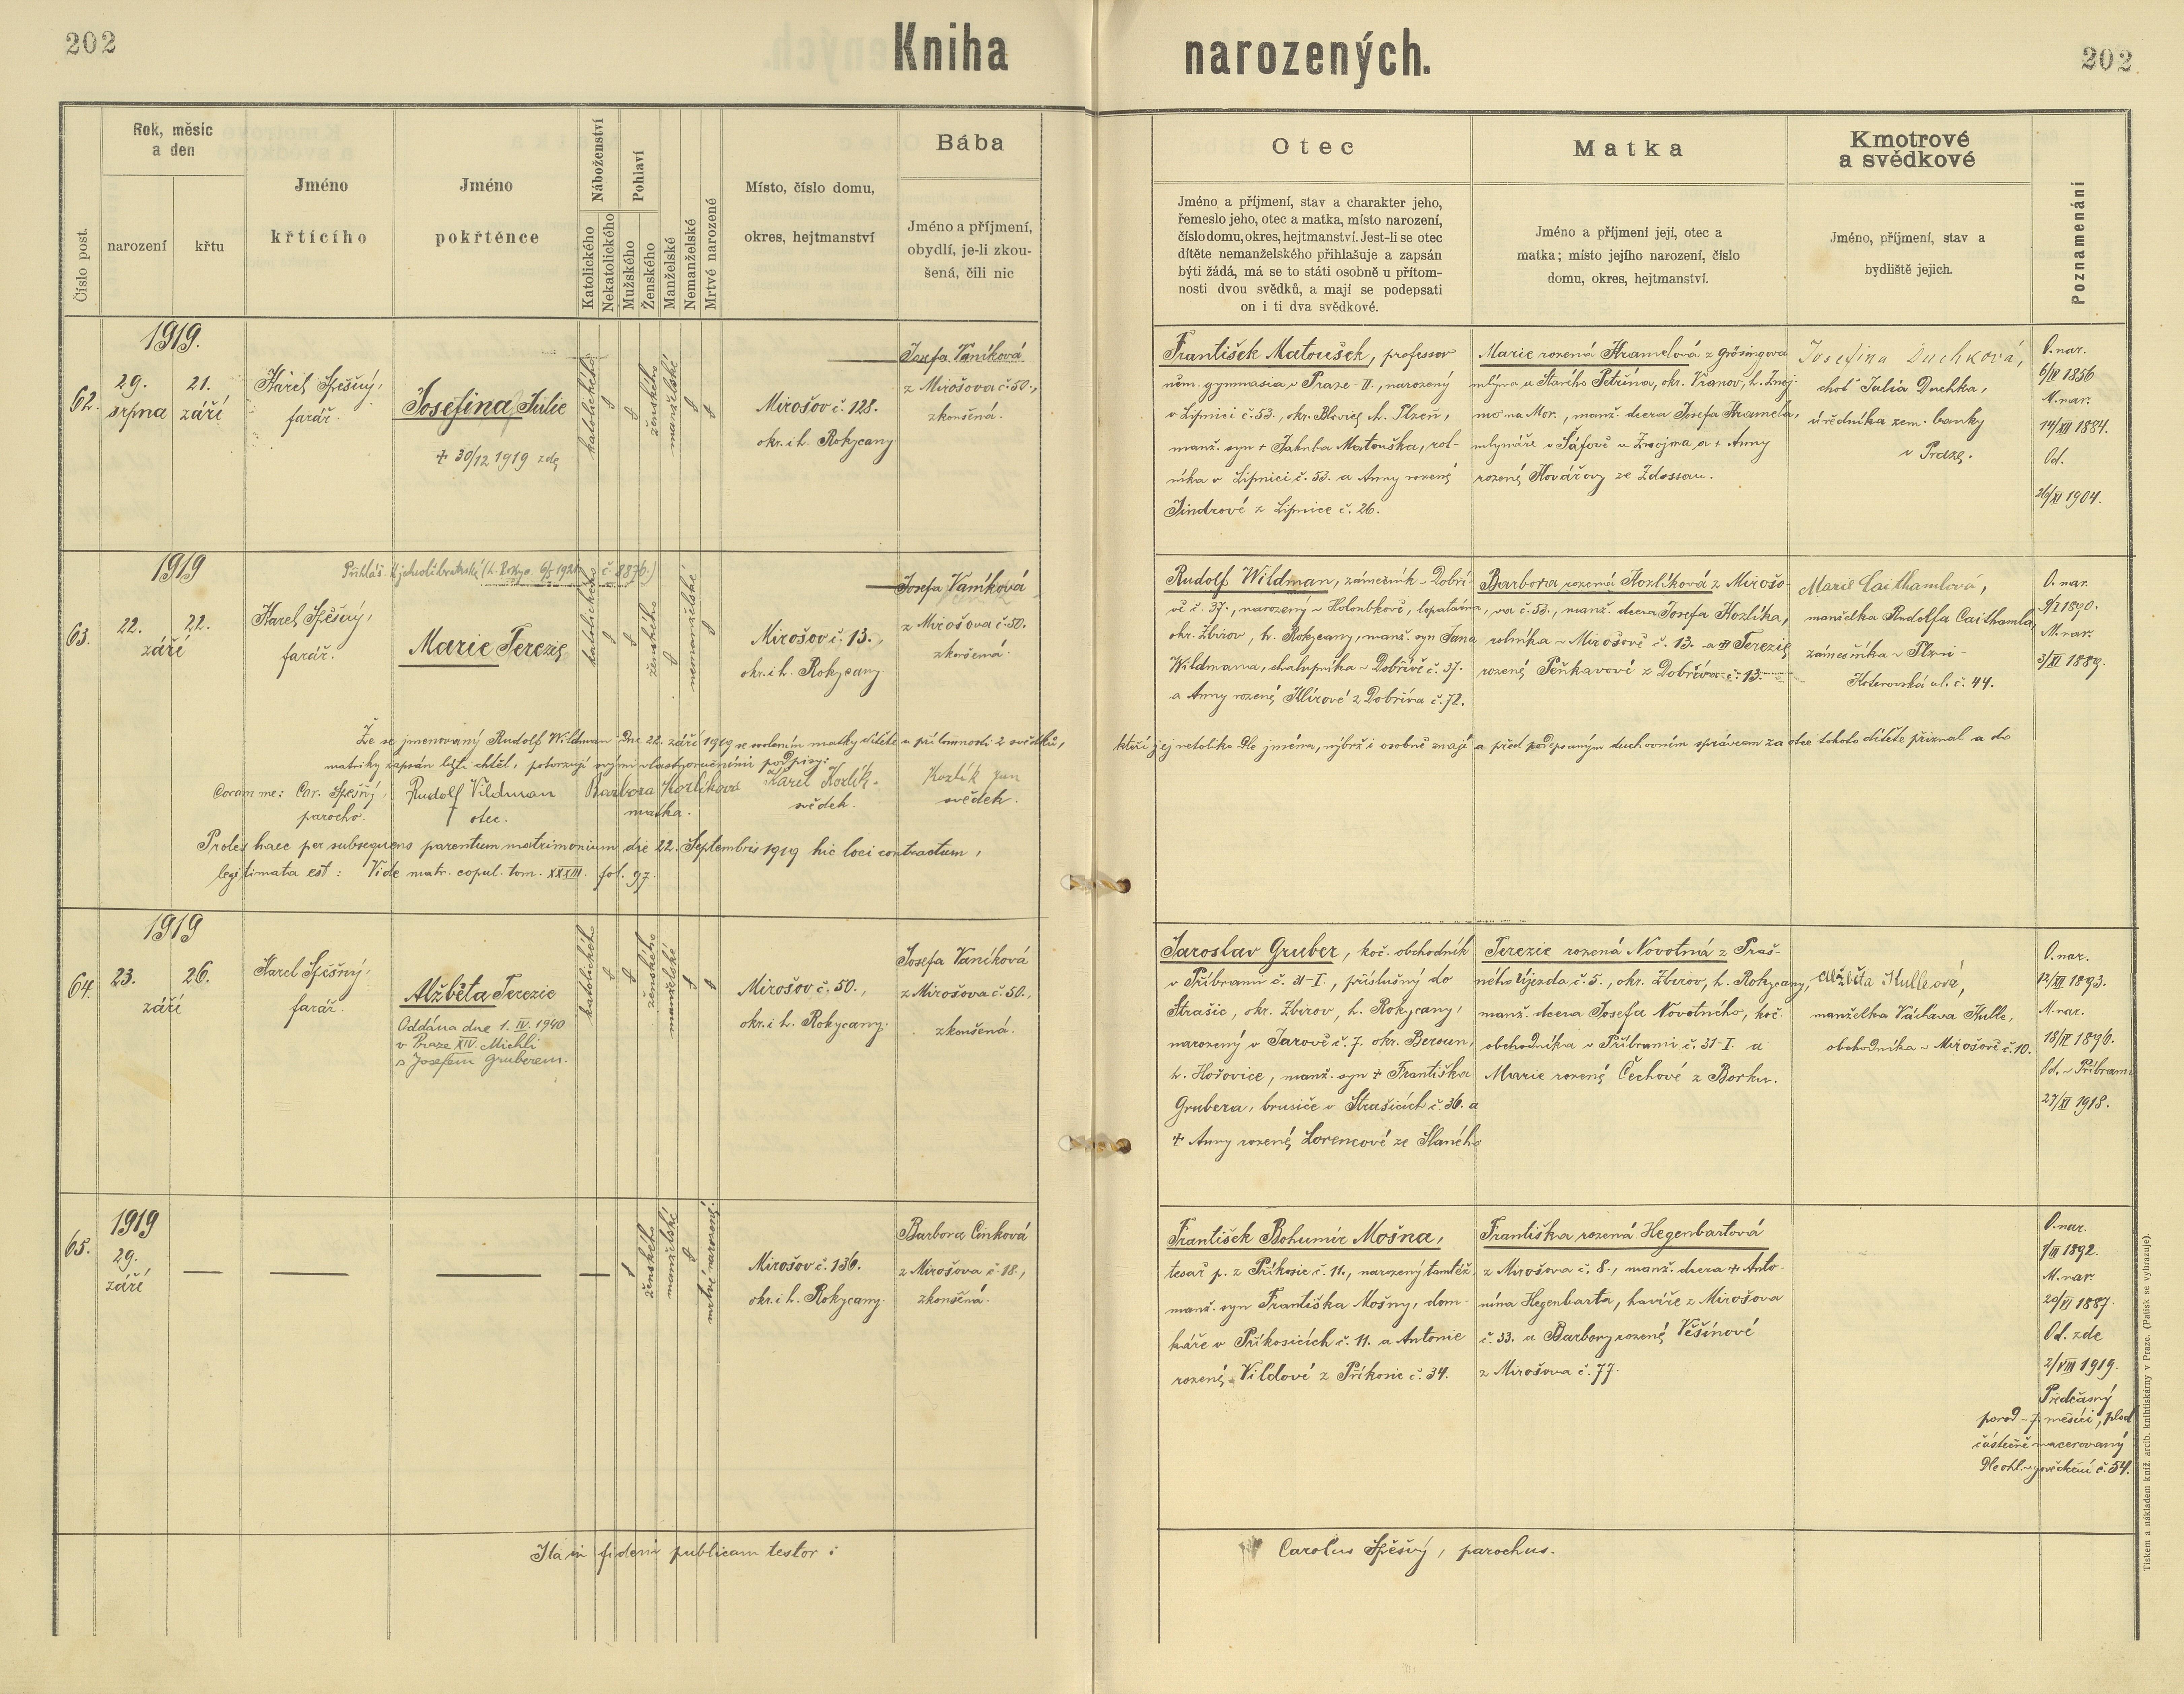 202
Kniha
narozených.
202
Číslo post.
Rok, měsíc
a den
narození
křtu
Jméno
křtícího
Jméno
pokřtěnce
Náboženství
Katolického
Nekatolického
Pohlaví
Mužského
Ženského
Manželské
Nemanželské
Mrtvé narozené
Místo, číslo domu,
okres, hejtmanství
Bába
Jméno a příjmení,
obydlí, je-li zkou-
šená, čili nic
Otec
Jméno a příjmení, stav a charakter jeho,
řemeslo jeho, otec a matka, místo narození,
číslo domu, okres, hejtmanství. Jest-li se otec
dítěte nemanželského přihlašuje a zapsán
býti žádá, má se to státi osobně u přítom-
nosti dvou svědků, a mají se podepsati
on i ti dva svědkové.
Matka
Jméno a příjmení její, otec a
matka; místo jejího narození, číslo
domu, okres, hejtmanství.
Kmotrové
a svědkové
Jméno, příjmení, stav a
bydliště jejich.
Poznamenání
62.
1919.
29.
srpna
21.
září
Karel Spěšný,
farář.
Josefina Julie
+ 30/12 1919 zde
katolického
ženského
manželské
Mirošov č. 128.
okr. i h. Rokycany
Josefa Vaníková
z Mirošova č. 50.,
zkoušená.
František Matoušek, professor
něm. gymnasia v Praze-II., narozený
v Lipnici č. 53., okr. Blovice, h. Plzeň,
manž. syn + Jakuba Matouška, rol-
níka v Lipnici č. 53. a Anny rozené
Jindrové z Lipnice č. 26.
Marie rozená Hramelová z Grösingova
mlýna u Starého Petřína, okr. Vranov, h. Znoj-
mo na Mor., manž. dcera Josefa Hramela,
mlynáře v Šafově u Znojma a + Anny
rozené Kovářovy ze Zdossau.
Josefina Duchková,
choť Julia Duchka,
úředníka zem. banky
v Praze.
O. nar.
6/IV 1856
M. nar.
14/XII 1884.
Od.
26/XI 1904.
63.
1919
22.
22.
září
Karel Spěšný,
farář.
Marie Terezie
katolického
ženského
nemanželské
Mirošov č. 13.,
okr. i h. Rokycany.
Josefa Vaníková
z Mirošova č. 50.
zkoušená.
Rudolf Wildman, zámečník v Dobří-
vě č. 37., narozený v Holoubkově, lopatárna,
okr. Zbirov, h. Rokycany, manž. syn Jana
Wildmana, chalupníka v Dobřívě č. 37.
a Anny rozené Klírové z Dobříva č. 72.
Barbora rozená Kozlíková z Mirošo-
va č. 53., manž. dcera Josefa Kozlíka,
rolníka v Mirošově č. 13. a Terezie
rozené Peňkavové z Dobříva č. 13.
Marie Caithamlová,
manželka Rudolfa Caithamla,
zámečníka v Plzni -
Koterovská ul. č. 44.
O. nar.
9/I 1890.
M. nar.
3/XI 1889.
Že se jmenovaný Rudolf Wildman dne 22. září 1919 se svolením matky dítěte u přítomnosti 2 svědků, kteří jej netoliko dle jména, nýbrž i osobně znají a před podepsaným duchovním správcem za otce tohoto dítěte přiznal a do
matriky zapsán býti chtěl, potvrzují svými vlastnoručními podpisy:
Coram me: Car. Spěšný, Rudolf Vildman Barbora Kozlíková Karel Kozlík Kozlík Jan
parocho. otec. matka. svědek. svědek.
Proles haec per subsequens parentum matrimonium die 22. Septembris 1919 hic loci contractum,
legitimata est: Vide matr. copul. tom. XXXIII. fol. 97.
64.
1919
23.
26.
září
Karel Spěšný,
farář.
Alžběta Terezie
Oddána dne 1. IV. 1940
v Praze XIV. Michli
s Josefem Gruberem.
katolického
ženského
manželské
Mirošov č. 50.,
okr. i h. Rokycany.
Josefa Vaníková
z Mirošova č. 50.,
zkoušená.
Jaroslav Gruber, koč. obchodník
v Příbrami č. 31-I., příslušný do
Strašic, okr. Zbirov, h. Rokycany,
narozený v Jarově č. 7. okr. Beroun,
h. Hořovice, manž. syn + Františka
Grubera, brusiče v Strašicích č. 36. a
+ Anny rozené Lorencové ze Slaného
Terezie rozená Novotná z Praš-
ného Újezda č. 5., okr. Zbirov, h. Rokycany,
manž. dcera Josefa Novotného, koč.
obchodníka v Příbrami č. 31-I. a
Marie rozené Čechové z Borku.
Alžběta Kulleová,
manželka Václava Kulle,
obchodníka v Mirošově č. 10.
O. nar.
12/XII 1893.
M. nar.
18/IV 1896.
Od. v Příbrami
27/XI 1918.
65.
1919
29.
září
ženského
manželské
mrtvě narozené.
Mirošov č. 136.
okr. i h. Rokycany.
Barbora Cinková
z Mirošova č. 18.,
zkoušená.
František Bohumír Mošna,
tesař p. z Příkosic č. 11., narozený tamtéž,
manž. syn Františka Mošny, dom-
káře v Příkosicích č. 11. a Antonie
rozené Vildové z Příkosic č. 34.
Františka rozená Hegenbartová
z Mirošova č. 8., manž. dcera + Anto-
nína Hegenbarta, havíře z Mirošova
č. 33. a Barbory rozené Věšínové
z Mirošova č. 77.
O. nar.
1/III 1892.
M. nar.
20/VI 1887.
Od. zde
2/VIII 1919.
Předčasný
porod - 7. měsíci, plod
částečně macerovaný
Dle ohl. vysvědčení č. 54.
Ita in fidem publicam testor:
Carolus Spěšný, parochus.
Tiskem a nákladem kníž. arcib. knihtiskárny v Praze. (Patisk se vyhrazuje).